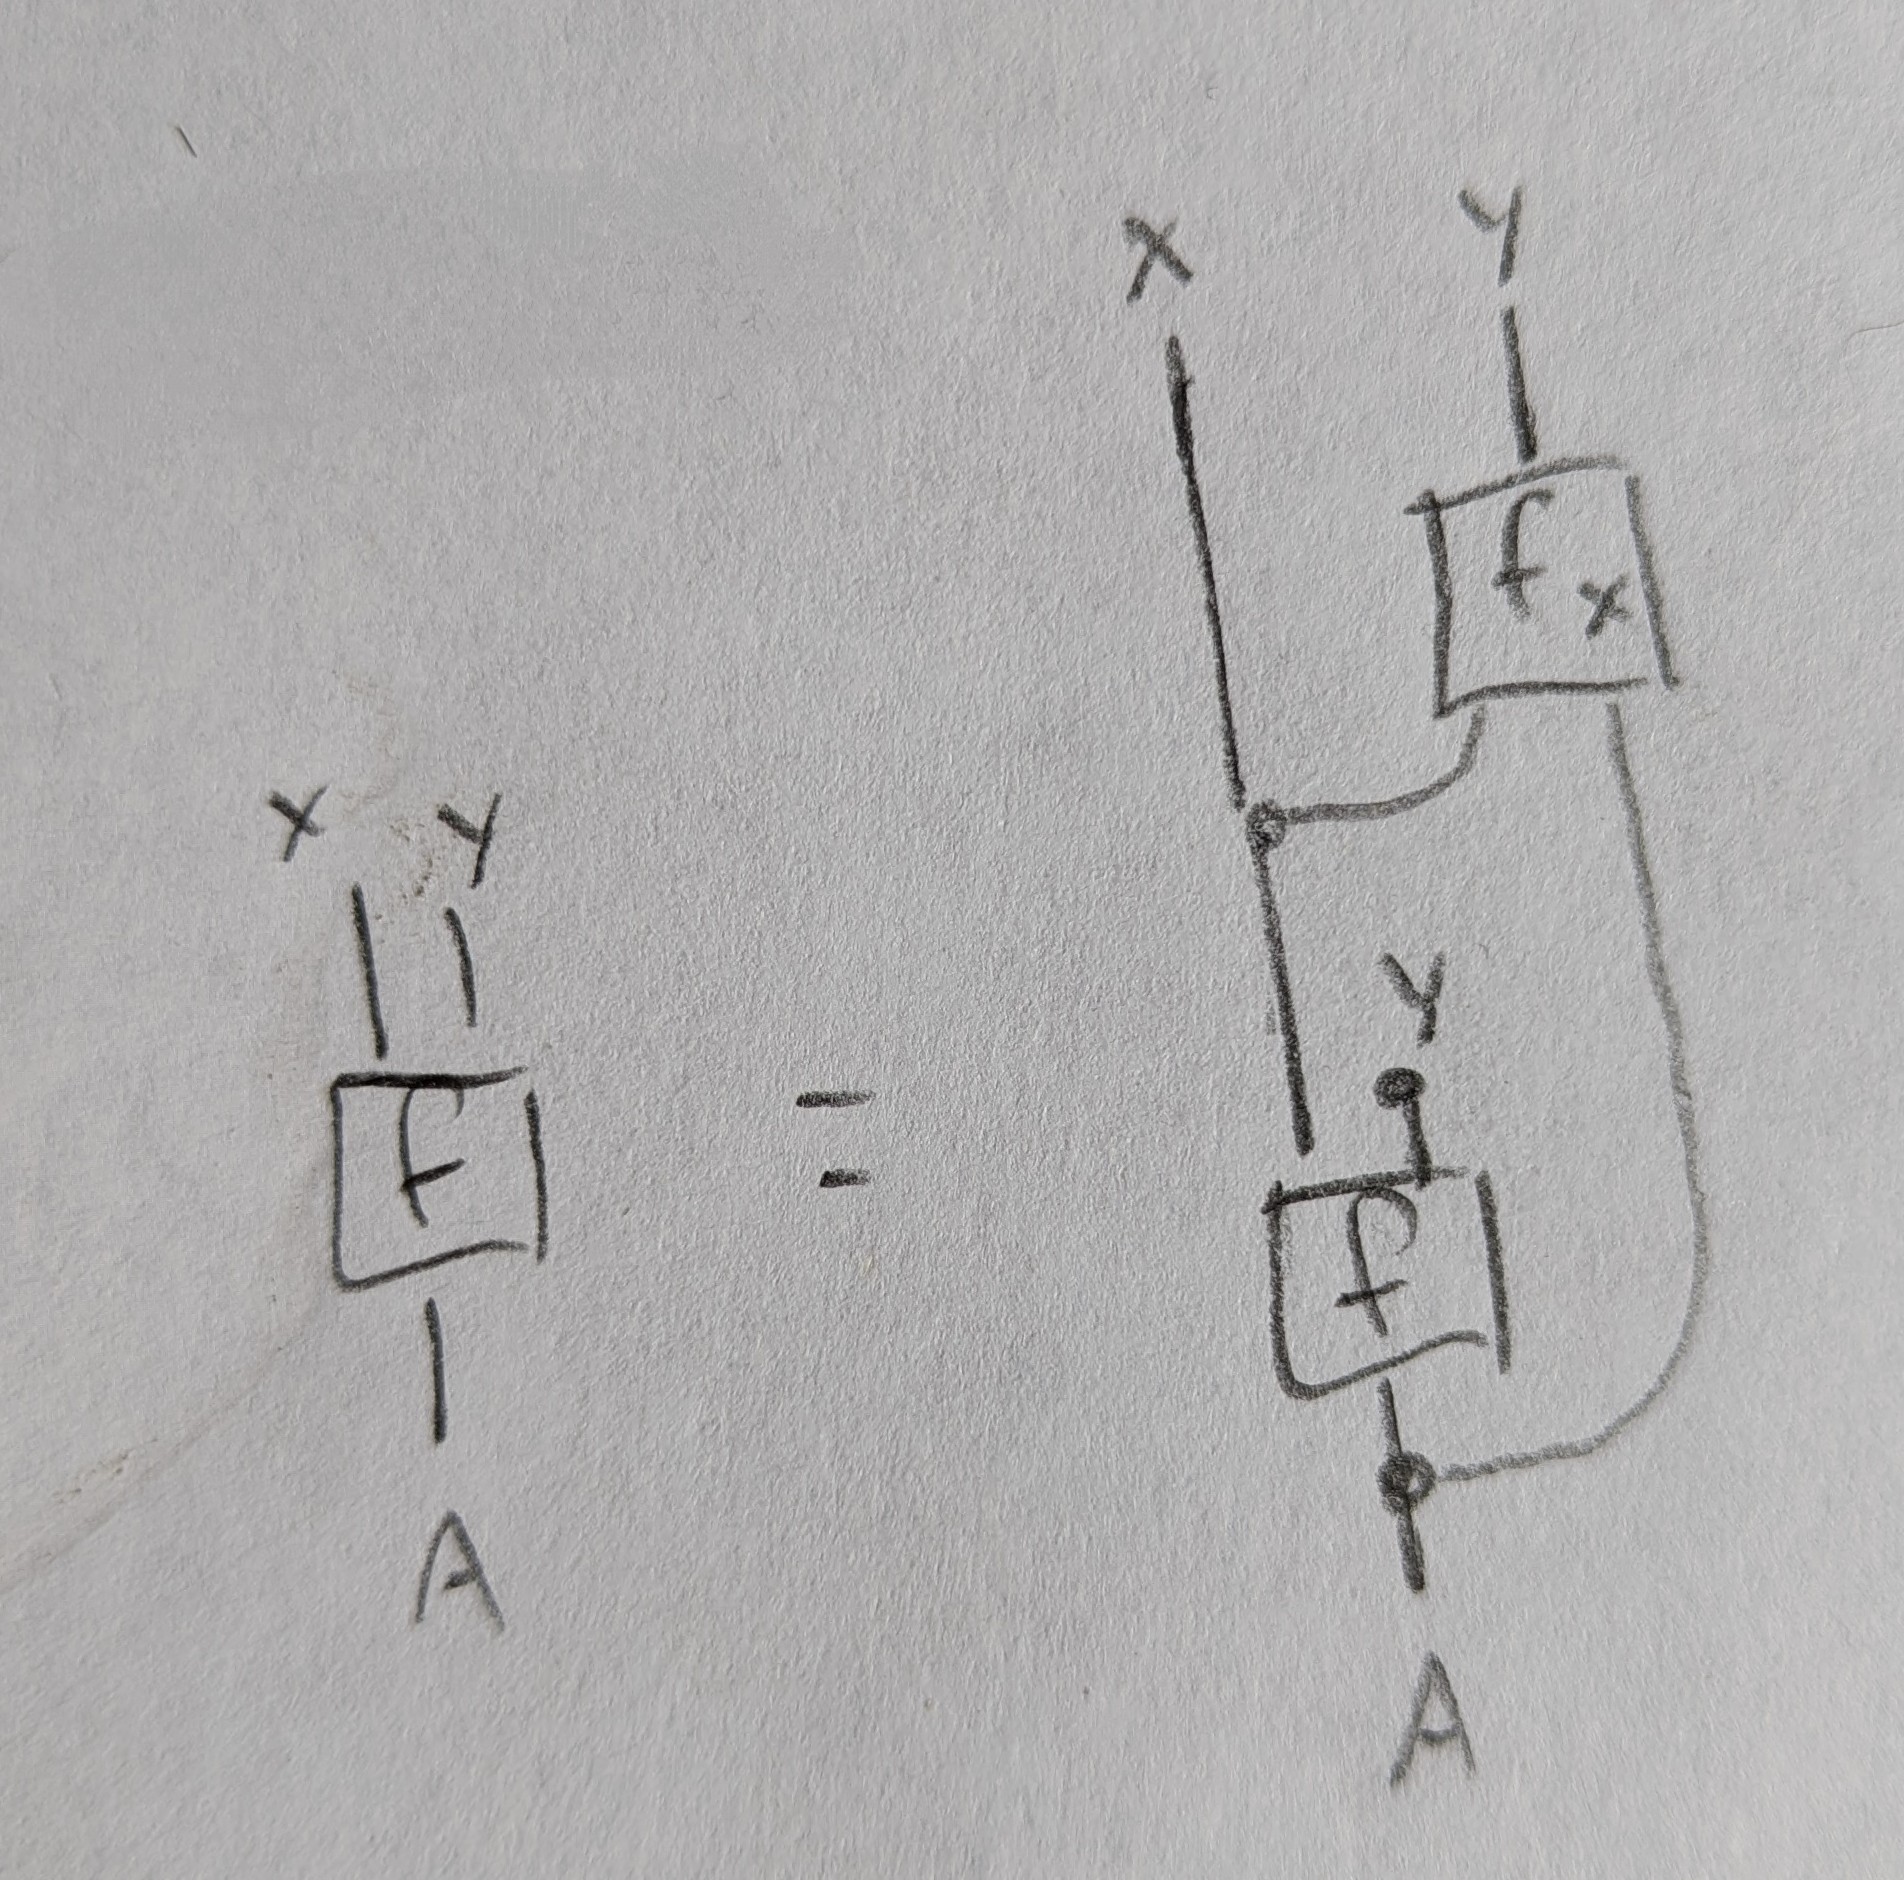 X Y
f
A
=
X Y
f_x
Y
f
A